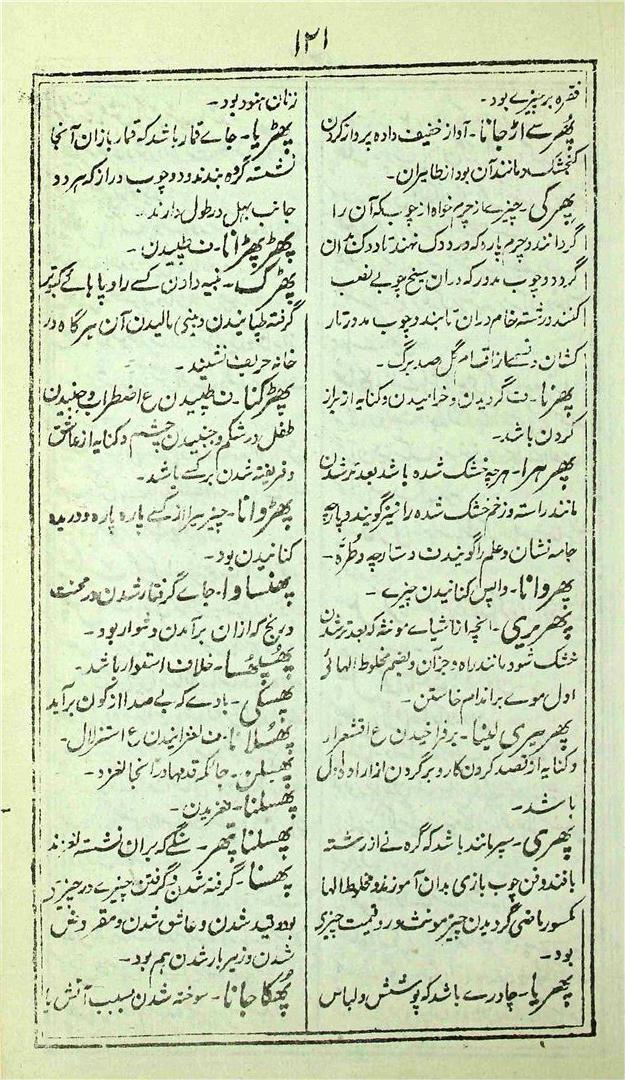 ۱۲۱
فقره بر سبزے بود۔
پھر سے اڑ جانا۔ آواز خفیف داده پرواز کردن
کنجشک و مانند آن بود از طایران۔
پھرکی۔ چیزے از چرم خواه از چوب که آن را
گردانند و چرم پاره که در دوک نهند تا دوک بدان
گردد و چوب مدور که دران سیخ چوبے نصب
کنند و رشته خام دران تابند و چوب مدور تار
کشان و قسمے از اقسام گل صدبرگ۔
پھرنا۔ ف گردیدن و خرامیدن و کنایه از براز
کردن باشد۔
پھرہرا۔ ہرچه خشک شده باشد بعد تر شدن
مانند راسته و زخم خشک شده را نیز گویند و پارچه
جامه نشان و علم را گویند ف دستارچه و طُرّه۔
پھروانا۔ واپس کنانیدن چیزے۔
پھرہری۔ آنچه از اشیاے مونثه که بعد تر شدن
خشک شود مانند راه و جز آن و بضم مخلوط الهائی
اول موے بر اندام خاستن۔
پھرہری لینا۔ برفراخیدن ع اقشعرار
و کنایه از قصد کردن کار و برگردن از ارادهٔ اول
باشد۔
پھری۔ سپر مانند باشد که گره نے از رشته
بافند و فن چوب بازی بدان آموزند و مخلوط الها
کسور ماضی گردیدن چیز مونث و رد قیمت چیزی
بود۔
پھریا۔ چادرے باشد که پوشش و لباس
زنان هنود بود۔
پھڑیا۔ جاے قمار باشد که قمار بازان آنجا
نشسته گروه بندند و دو چوب دراز که هر دو
جانب بہل در طول دارند۔
پھڑپھڑانا۔ ف طپیدن۔
پھڑک۔ تنبیه دادن کسے را و پاہائے کبوتر
گرفته طپانیدن و بینی مالیدن آن هرگاه در
خانه حریف نشیند۔
پھڑکنا۔ ف طپیدن ع اضطراب و جنبیدن
طفل در شکم و جنبیدن چشم و کنایه از عاشق
و فریفته شدن بر کسے باشد۔
پھڑوانا۔ چیزے را از کسے پاره پاره و دریده
کنانیدن بود۔
پھنساوا۔ جاے گرفتار شدن در محنت
و رنج کز ازان برآمدن دشوار بود۔
پھسپھسا۔ خلاف استوار باشد۔
پھسکی۔ بادے که بے صدا از کون برآید
پھسلانا۔ ف لغزانیدن ع استزلال۔
پھسلن۔ جائیکه قدمها در آنجا لغزد۔
پھسلنا۔ لغزیدن۔
پھسلنا پتھر۔ سنگے که بران نشسته لغزند
پھنسنا۔ گرفته شدن و گرفتن چیزے در چیزے
بود و قید شدن و عاشق شدن و مقروض
شدن و زیر بار شدن هم بود۔
پُھکا جانا۔ سوخته شدن بسبب آتش یا